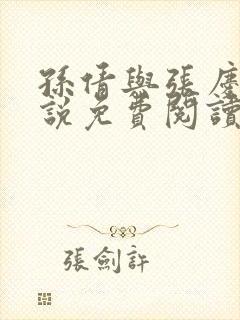 孫倩與張慶
說免費閱讀
張劍許